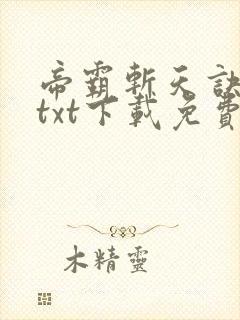 帝霸斬天訣
txt下載免費
木精靈